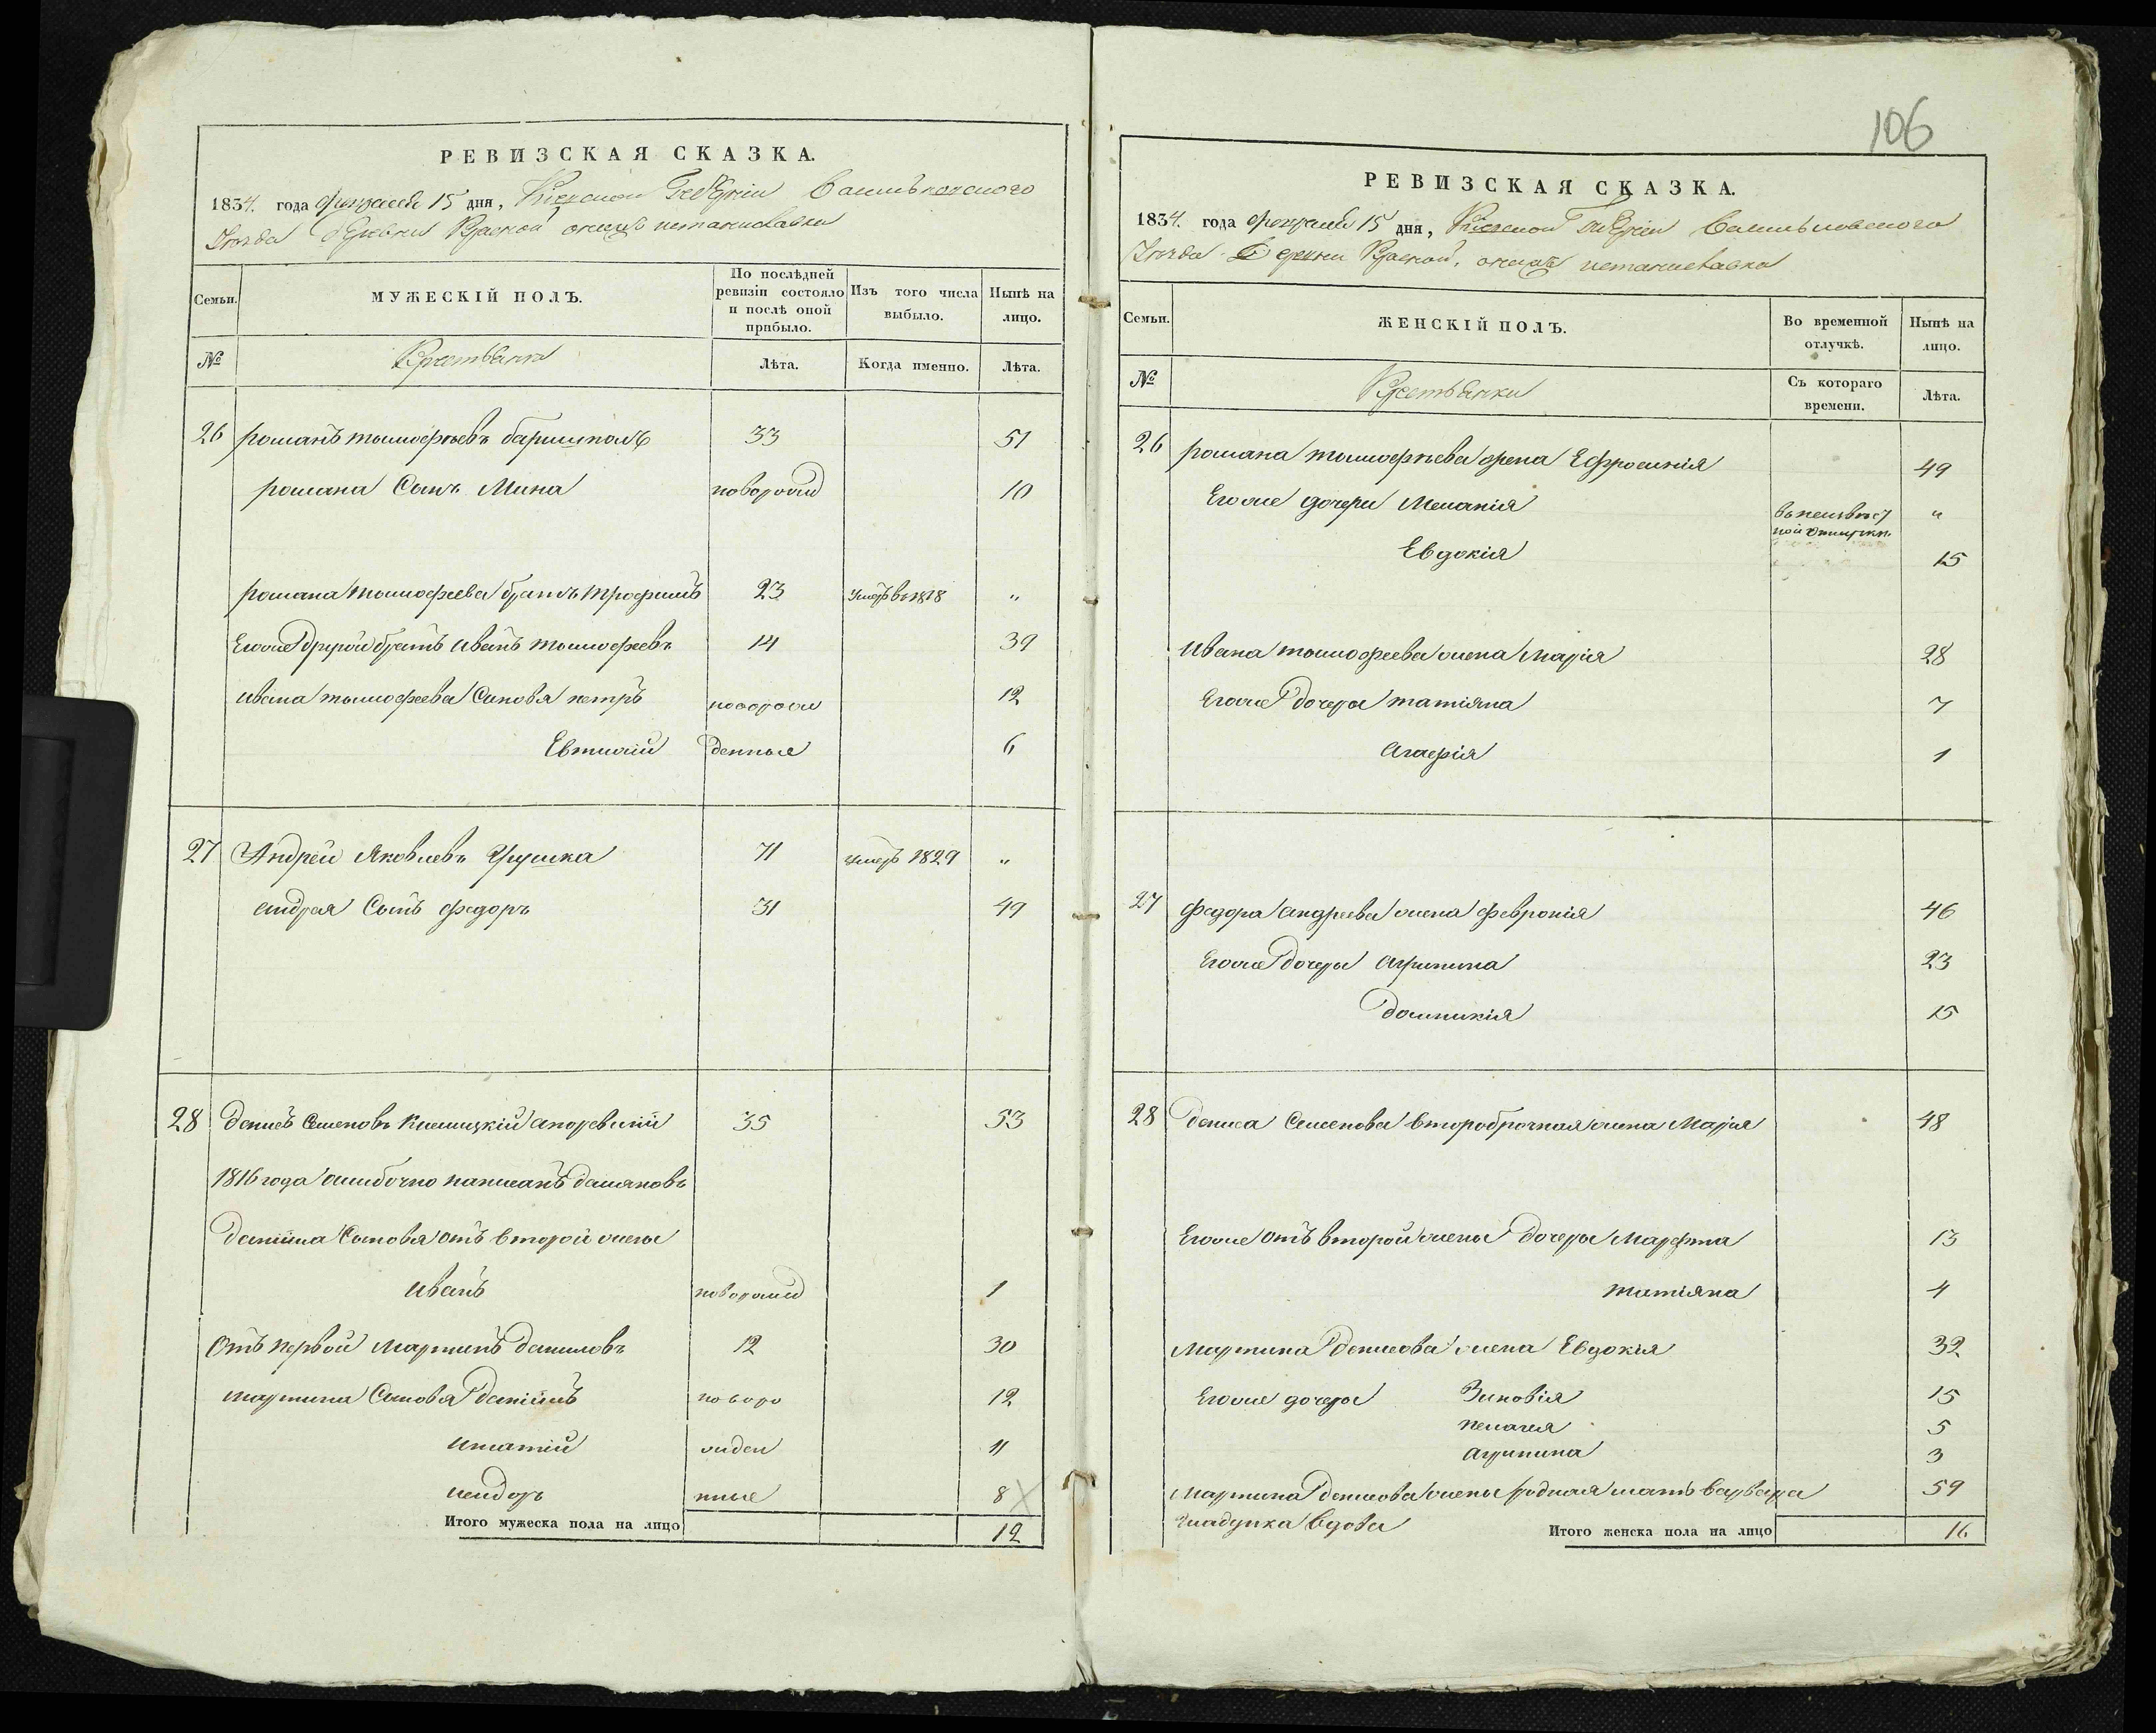 106
РЕВИЗСКАЯ СКАЗКА.
1834. года февраля 15 дня, Кіевской Губерніи Васильковского
Уѣзда деревни Красной
Семьи.
МУЖЕСКІЙ ПОЛЪ.
По послѣдней ревизіи состояло и послѣ оной прибыло.
Изъ того числа выбыло.
Нынѣ на лицо.
№
Крестьяне
Лѣта.
Когда именно.
Лѣта.
26 романъ тимофѣевъ 33 51
романа Сынъ Мина новорожд 10
романа тимофеева братъ трофимъ 23 умеръ въ 1818 "
Егоже другой братъ иванъ тимофеевъ 14 39
ивана тимофеева Сыновя петръ новорож 12
Евтихій денные 6
27 Андрей Яковлевъ 71 умеръ 1829 "
андрея Сынъ федоръ 31 49
28 денисъ Семеновъ 35 53
1816 года ошибочно написанъ
Сыновя отъ второй жены
иванъ новорожд 1
Отъ первой мартинъ 12 30
мартина Сыновя новоро 12
игнатій жден 11
исидоръ нные 8
Итого мужеска пола на лицо 12
РЕВИЗСКАЯ СКАЗКА.
1834. года февраля 15 дня, Кіевской Губерніи Васильковского
Уѣзда Деревни Красной,
Семьи.
ЖЕНСКІЙ ПОЛЪ.
Во временной отлучкѣ.
Нынѣ на лицо.
№
Крестьянки
Съ котораго времени.
Лѣта.
26 романа тимофѣева жена Ефросинія 49
Егоже дочери Меланія въ неизвѣст "
ной отлучкѣ
Евдокія 15
ивана тимофеева жена Марія 28
Егоже дочеры татіяна 7
Агафія 1
27 федора андреева жена февронія 46
Егоже дочеры агрипина 23
домникія 15
28 дениса Семенова второбрачная жена Марія 48
Егоже отъ второй жены дочеры Марфта 13
татіяна 4
мартина денисова жена Евдокія 32
Егоже дочеры Зиновія 15
пелагея 5
агрипина 3
мартина денисова жены родная мать варвара 59
вдова
Итого женска пола на лицо 16